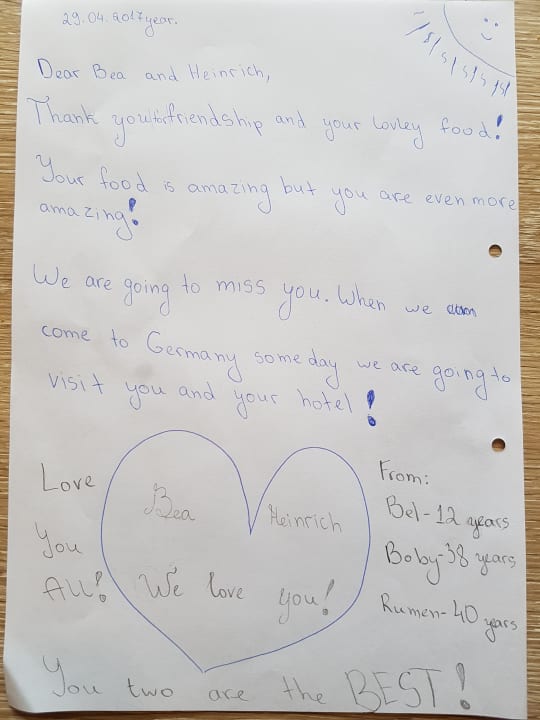 29.04.2017year.
Dear Bea and Heinrich,
Thank you for friendship and your lovley food!
Your food is amazing but you are even more
amazing!
We are going to miss you. When we
come to Germany some day we are going to
visit you and your hotel!
Love
You
All!
Bea
Heinrich
We love you!
From:
Bel-12 years
Boby-38 years
Rumen-40 years
You two are the BEST!